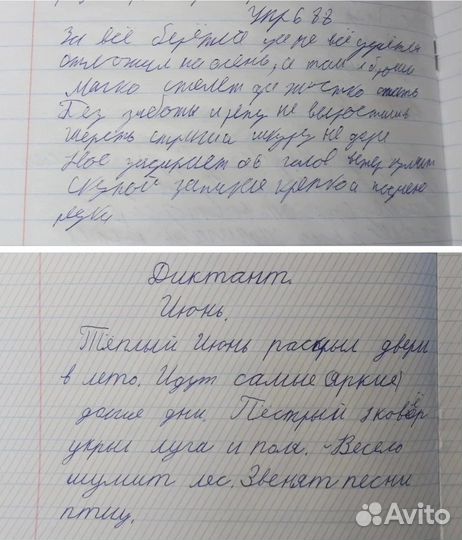 Упр 6 88
За всё берётся да не всё
отложил на осень, а там
Мягко стелет да жестко спать
Без заботы и репу не вырастишь
Шерсть стриги а шкуру не дери
Нос задирает а в голове ветер
Скупой запирает крепко а
редко
Диктант.
Июнь.
Тёплый Июнь раскрыл двери
в лето. Идут самые (яркие)
долгие дни. Пестрый ковёр
укрыл луга и поля. Весело
шумит лес. Звенят песни
птиц.
Avito